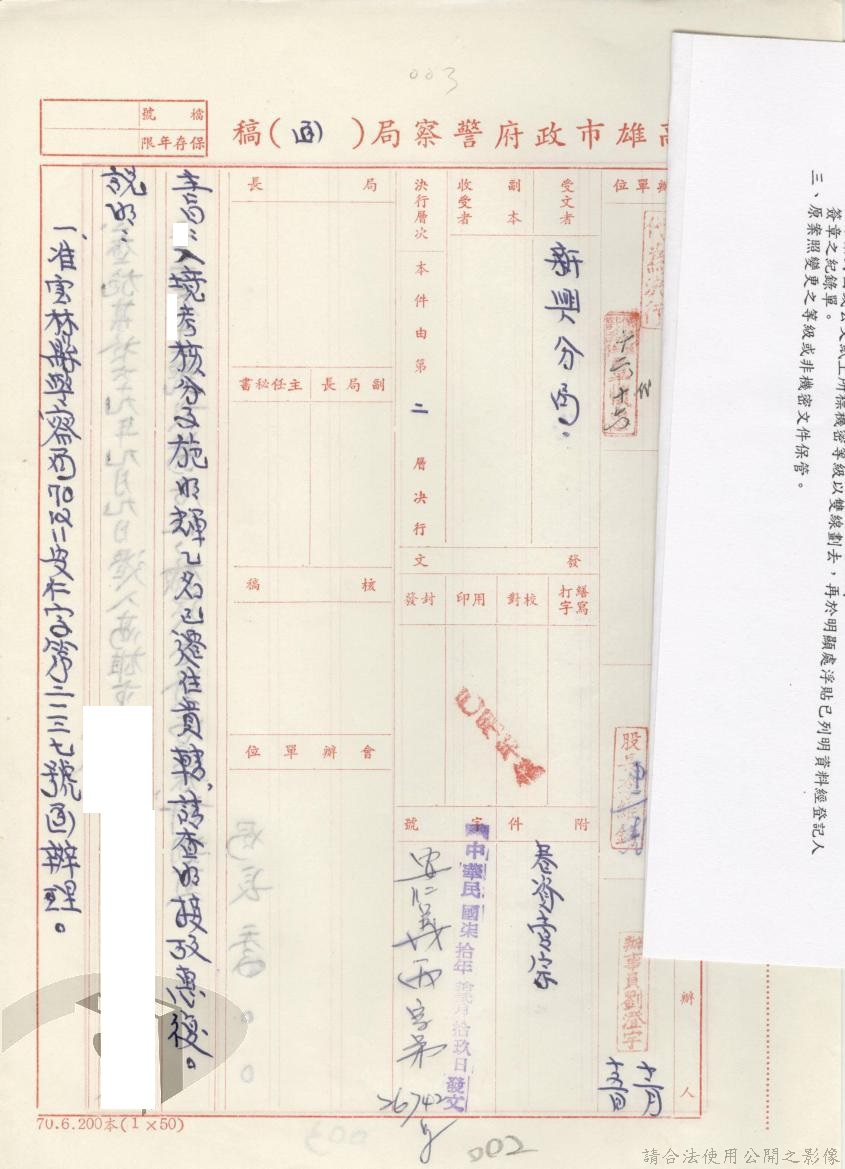 003
簽章之紀錄單。
三、原案照變更之等級或非機密文件保管。
等級以雙線劃去，再於明顯處浮貼已列明資料經登記人
雄市政府警察局（函）稿
檔號
保存年限
辦單位
受文者
新興分局。
副本
收受者
決行層次
本件由第二層決行
局長
副局長
主任秘書
核稿
會辦單位
發文
繕寫
打字
校對
用印
封發
附件
卷資
字號
中華民國柒拾年
拾玖日發文
26742
辦事員劉澄宇
十二月
十五日
辦人
入境考核分子施明輝乙名已遷往貴轄，請查明接收惠復。
說明：
一、准雲林縣警察局70
字第二二三七號函辦理。
70.6.200本(1×50)
002
請合法使用公開之影像